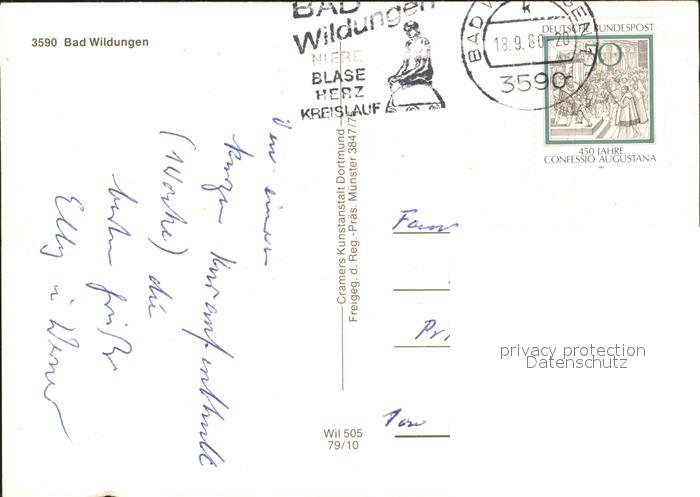 3590 Bad Wildungen
BAD
Wildungen
NIERE
BLASE
HERZ
KREISLAUF
BAD W
k
18.9.80-20
3590
DEUTSCHE BUNDESPOST
50
450 JAHRE
CONFESSIO AUGUSTANA
Von einem
kurzen Kuraufenthalt
(1 Woche) die
besten Grüße
Elly u Werner
Cramers Kunstanstalt Dortmund
Freigeg. d. Reg.-Präs. Münster 3847/7
Wil 505
79/10
Fam
privacy protection
Datenschutz